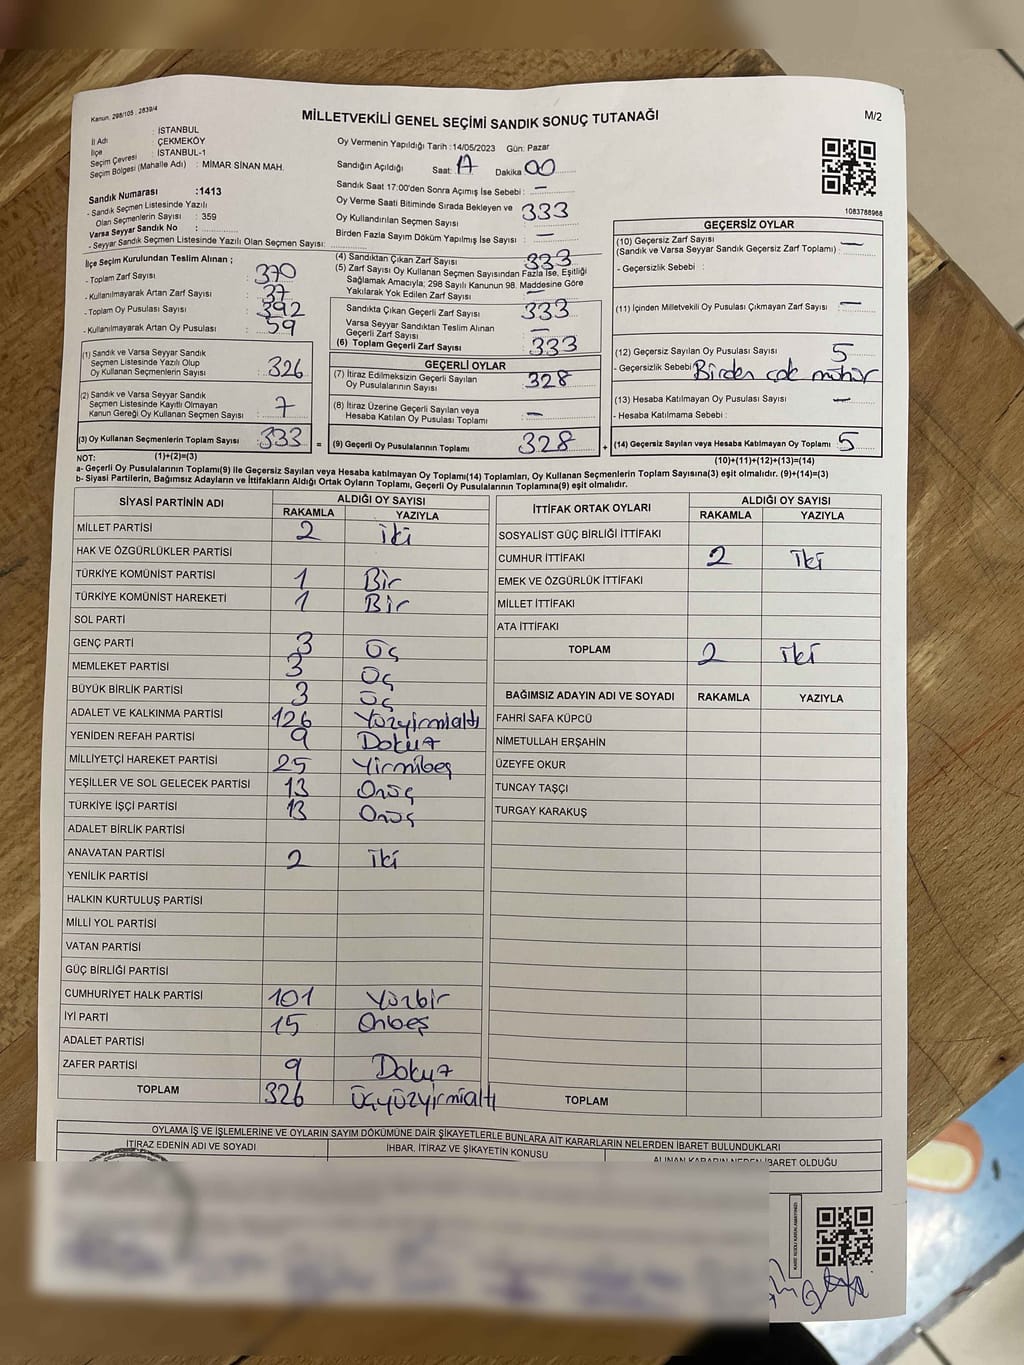 Kanun, 298/105 , 2839/4
MİLLETVEKİLİ GENEL SEÇİMİ SANDIK SONUÇ TUTANAĞI
M/2
İl Adı : İSTANBUL
İlçe : ÇEKMEKÖY
Seçim Çevresi : İSTANBUL-1
Seçim Bölgesi (Mahalle Adı) : MİMAR SİNAN MAH.
Sandık Numarası :1413
- Sandık Seçmen Listesinde Yazılı
Olan Seçmenlerin Sayısı : 359
Varsa Seyyar Sandık No :
- Seyyar Sandık Seçmen Listesinde Yazılı Olan Seçmen Sayısı:
İlçe Seçim Kurulundan Teslim Alınan ;
- Toplam Zarf Sayısı : 370
- Kullanılmayarak Artan Zarf Sayısı : 37
- Toplam Oy Pusulası Sayısı : 392
- Kullanılmayarak Artan Oy Pusulası : 59
(1) Sandık ve Varsa Seyyar Sandık
Seçmen Listesinde Yazılı Olup
Oy Kullanan Seçmenlerin Sayısı : 326
(2) Sandık ve Varsa Seyyar Sandık
Seçmen Listesinde Kayıtlı Olmayan
Kanun Gereği Oy Kullanan Seçmen Sayısı : 7
(3) Oy Kullanan Seçmenlerin Toplam Sayısı : 333 =
Oy Vermenin Yapıldığı Tarih : 14/05/2023 Gün: Pazar
Sandığın Açıldığı Saat: 17 Dakika 00
Sandık Saat 17:00'den Sonra Açımış İse Sebebi : —
Oy Verme Saati Bitiminde Sırada Bekleyen ve
Oy Kullandırılan Seçmen Sayısı : 333
Birden Fazla Sayım Döküm Yapılmış İse Sayısı : —
(4) Sandıktan Çıkan Zarf Sayısı : 333
(5) Zarf Sayısı Oy Kullanan Seçmen Sayısından Fazla İse, Eşitliği
Sağlamak Amacıyla; 298 Sayılı Kanunun 98. Maddesine Göre
Yakılarak Yok Edilen Zarf Sayısı : —
Sandıkta Çıkan Geçerli Zarf Sayısı : 333
Varsa Seyyar Sandıktan Teslim Alınan
Geçerli Zarf Sayısı : —
(6) Toplam Geçerli Zarf Sayısı : 333
GEÇERLİ OYLAR
(7) İtiraz Edilmeksizin Geçerli Sayılan
Oy Pusulalarının Sayısı : 328
(8) İtiraz Üzerine Geçerli Sayılan veya
Hesaba Katılan Oy Pusulaları Toplamı : —
(9) Geçerli Oy Pusulalarının Toplamı : 328 +
1083788968
GEÇERSİZ OYLAR
(10) Geçersiz Zarf Sayısı : —
(Sandık ve Varsa Seyyar Sandık Geçersiz Zarf Toplamı)
- Geçersizlik Sebebi :
(11) İçinden Milletvekili Oy Pusulası Çıkmayan Zarf Sayısı : —
(12) Geçersiz Sayılan Oy Pusulası Sayısı : 5
- Geçersizlik Sebebi : Birden çok mühür
(13) Hesaba Katılmayan Oy Pusulası Sayısı : —
- Hesaba Katılmama Sebebi :
(14) Geçersiz Sayılan veya Hesaba Katılmayan Oy Toplamı : 5
NOT: (1)+(2)=(3) (10)+(11)+(12)+(13)=(14)
a- Geçerli Oy Pusulalarının Toplamı(9) ile Geçersiz Sayılan veya Hesaba katılmayan Oy Toplamı(14) Toplamları, Oy Kullanan Seçmenlerin Toplam Sayısına(3) eşit olmalıdır. (9)+(14)=(3)
b- Siyasi Partilerin, Bağımsız Adayların ve İttifakların Aldığı Ortak Oyların Toplamı, Geçerli Oy Pusulalarının Toplamına(9) eşit olmalıdır.
SİYASİ PARTİNİN ADI ALDIĞI OY SAYISI
RAKAMLA YAZIYLA
MİLLET PARTİSİ 2 iki
HAK VE ÖZGÜRLÜKLER PARTİSİ
TÜRKİYE KOMÜNİST PARTİSİ 1 Bir
TÜRKİYE KOMÜNİST HAREKETİ 1 Bir
SOL PARTİ
GENÇ PARTİ 3 Üç
MEMLEKET PARTİSİ 3 Üç
BÜYÜK BİRLİK PARTİSİ 3 Üç
ADALET VE KALKINMA PARTİSİ 126 Yüzyirmialtı
YENİDEN REFAH PARTİSİ 9 Dokuz
MİLLİYETÇİ HAREKET PARTİSİ 25 Yirmibeş
YEŞİLLER VE SOL GELECEK PARTİSİ 13 Onüç
TÜRKİYE İŞÇİ PARTİSİ 13 Onüç
ADALET BİRLİK PARTİSİ
ANAVATAN PARTİSİ 2 iki
YENİLİK PARTİSİ
HALKIN KURTULUŞ PARTİSİ
MİLLİ YOL PARTİSİ
VATAN PARTİSİ
GÜÇ BİRLİĞİ PARTİSİ
CUMHURİYET HALK PARTİSİ 101 Yüzbir
İYİ PARTİ 15 Onbeş
ADALET PARTİSİ
ZAFER PARTİSİ 9 Dokuz
TOPLAM 326 üçyüzyirmialtı
İTTİFAK ORTAK OYLARI ALDIĞI OY SAYISI
RAKAMLA YAZIYLA
SOSYALİST GÜÇ BİRLİĞİ İTTİFAKI
CUMHUR İTTİFAKI 2 iki
EMEK VE ÖZGÜRLÜK İTTİFAKI
MİLLET İTTİFAKI
ATA İTTİFAKI
TOPLAM 2 iki
BAĞIMSIZ ADAYIN ADI VE SOYADI RAKAMLA YAZIYLA
FAHRİ SAFA KÜPCÜ
NİMETULLAH ERŞAHİN
ÜZEYFE OKUR
TUNCAY TAŞÇI
TURGAY KARAKUŞ
TOPLAM
OYLAMA İŞ VE İŞLEMLERİNE VE OYLARIN SAYIM DÖKÜMÜNE DAİR ŞİKAYETLERLE BUNLARA AİT KARARLARIN NELERDEN İBARET BULUNDUKLARI
İTİRAZ EDENİN ADI VE SOYADI İHBAR, İTİRAZ VE ŞİKAYETİN KONUSU ALINAN KARARIN NEDEN İBARET OLDUĞU